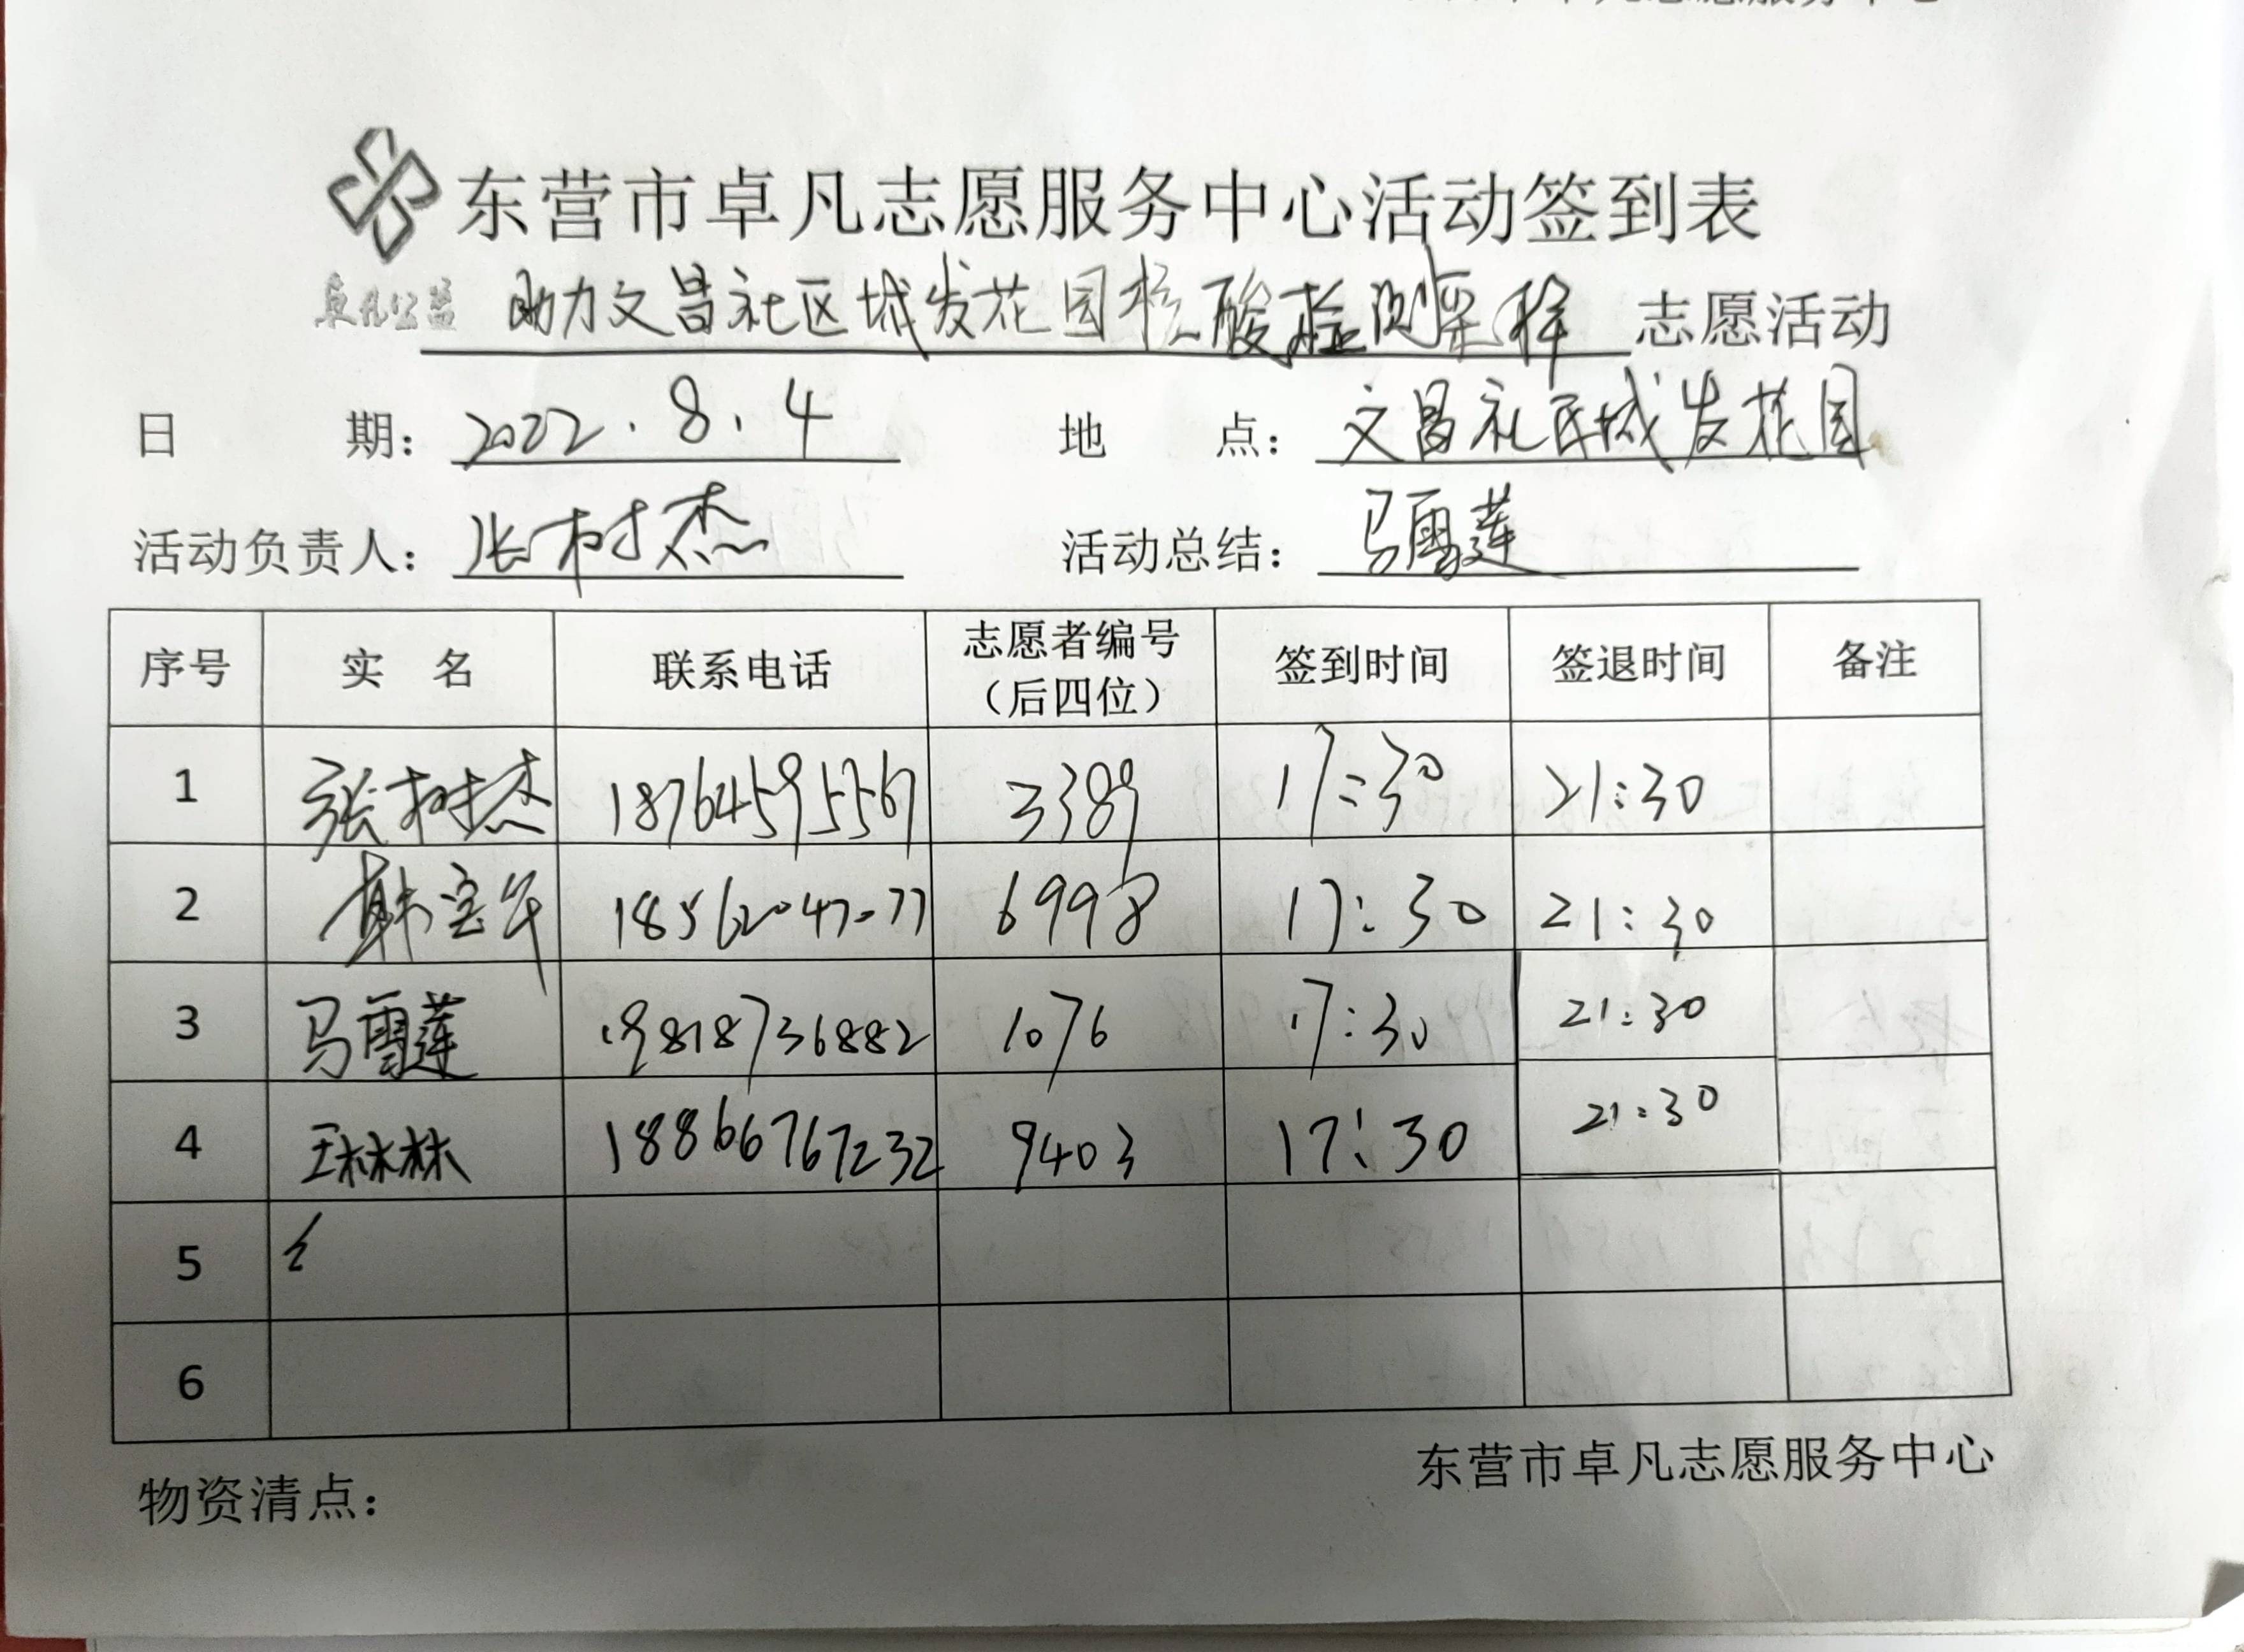 东营市卓凡志愿服务中心活动签到表
卓凡公益 助力文昌社区城发花园核酸检测采样 志愿活动
日 期： 2022.8.4 地 点： 文昌社区城发花园
活动负责人： 张树杰 活动总结： 马雪莲
序号 实 名 联系电话 志愿者编号（后四位） 签到时间 签退时间 备注
1 张树杰 18764595567 3389 17:30 21:30
2 韩宝华 18562047077 6998 17:30 21:30
3 马雪莲 19818736882 1076 17:30 21:30
4 王林林 18866767232 9403 17:30 21:30
5
6
东营市卓凡志愿服务中心
物资清点：